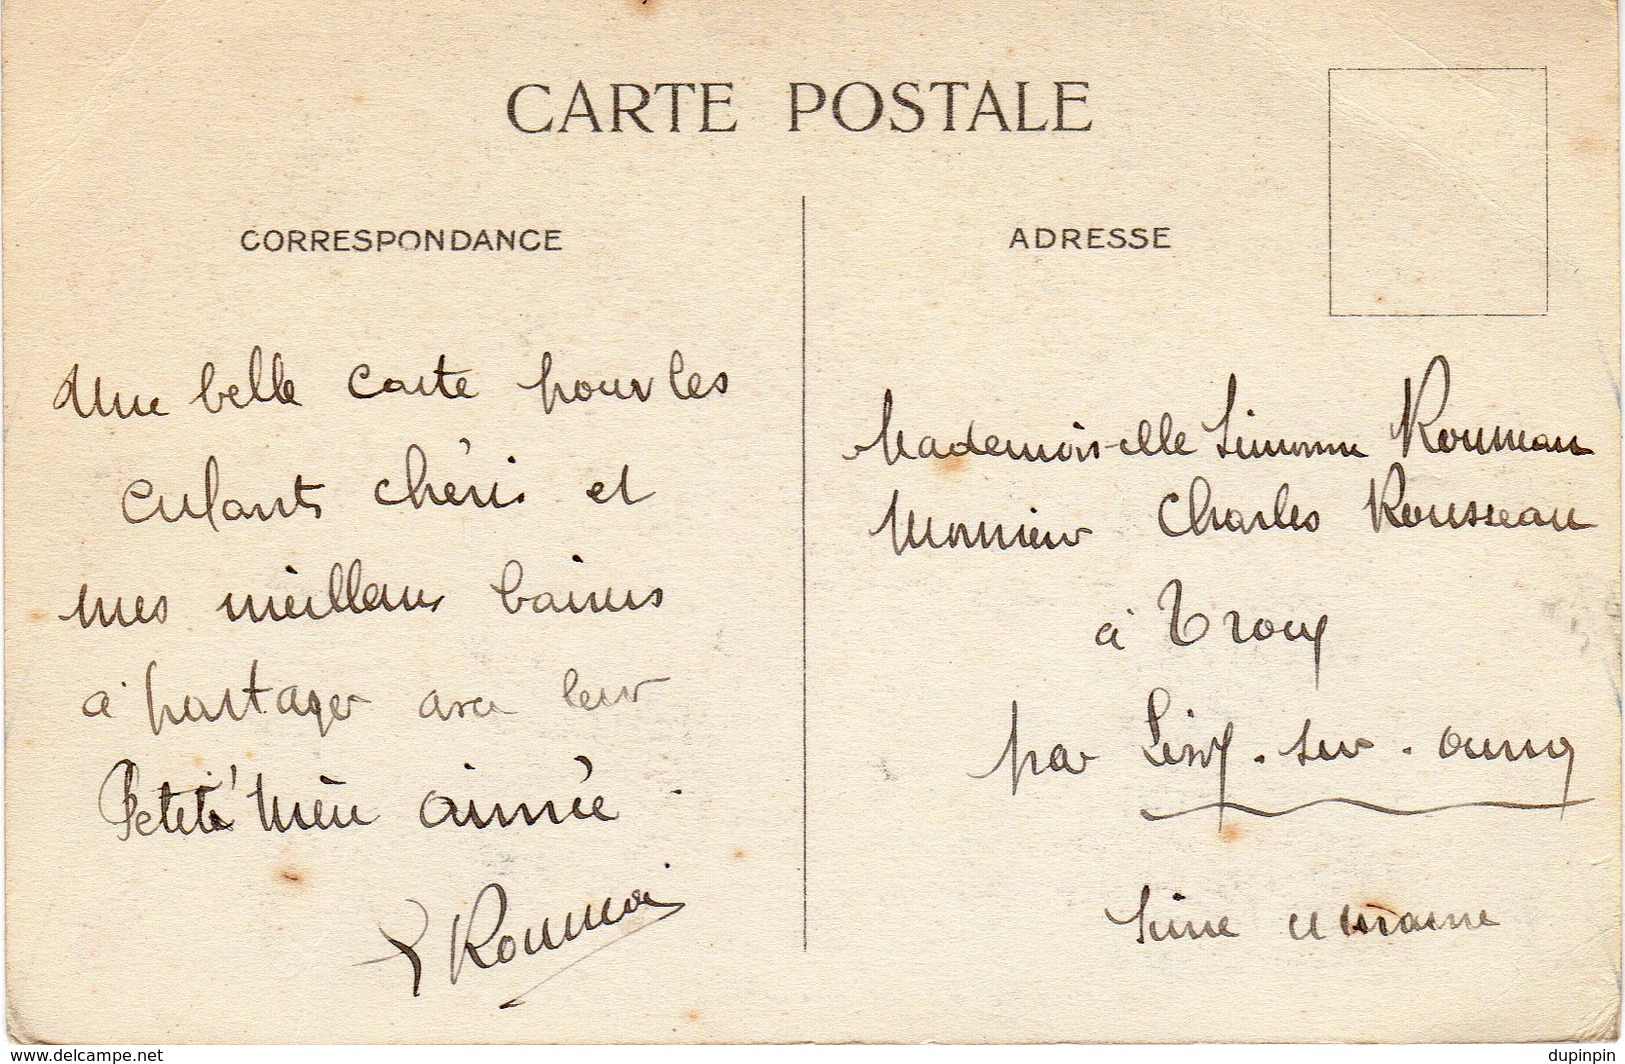 CARTE POSTALE
CORRESPONDANCE
Une belle carte pour les
enfants chéris et
mes meilleurs baisers
à partager avec leur
Petite Mère aimée.
ADRESSE
Mademoiselle Simonne Rousseau
Monsieur Charles Rousseau
à Trocy
par Lizy-sur-Ourcq
Seine et Marne
www.delcampe.net
dupinpin